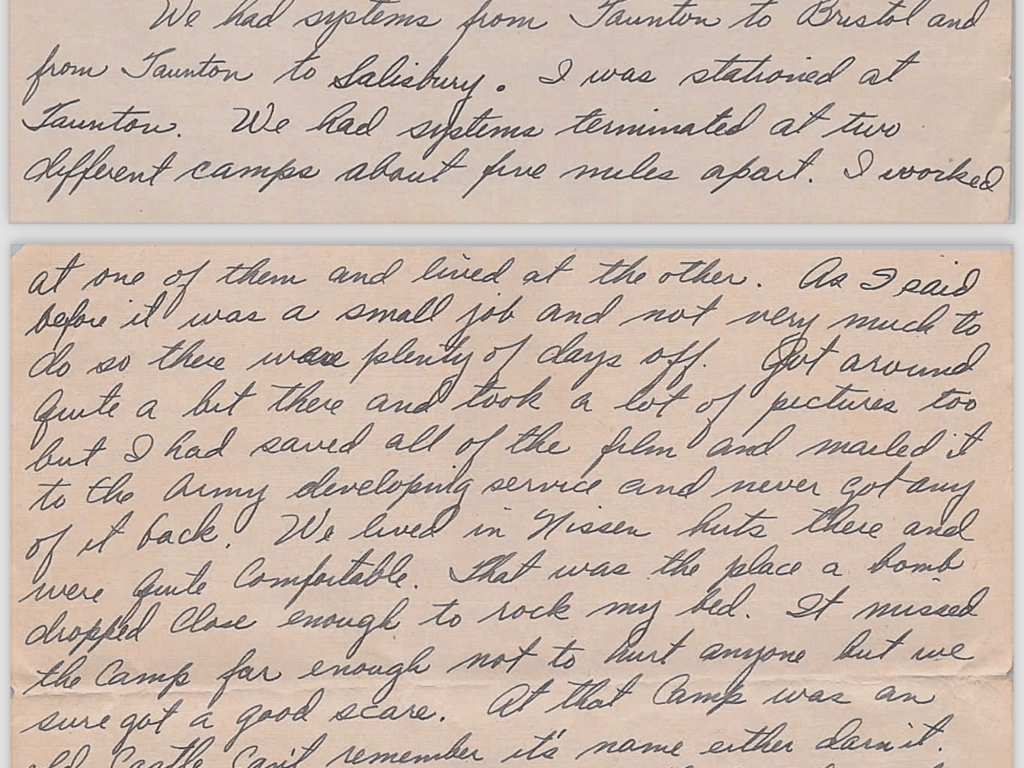 We had systems from Taunton to Bristol and
from Taunton to Salisbury. I was stationed at
Taunton. We had systems terminated at two
different camps about five miles apart. I worked
at one of them and lived at the other. As I said
before it was a small job and not very much to
do so there were plenty of days off. Got around
quite a bit there and took a lot of pictures too
but I had saved all of the film and mailed it
to the Army developing service and never got any
of it back. We lived in Nissen huts there and
were quite Comfortable. That was the place a bomb
dropped Close enough to rock my bed. It missed
the Camp far enough not to hurt anyone but we
sure got a good scare. At that Camp was an
old Castle Can't remember it's name either darn it.